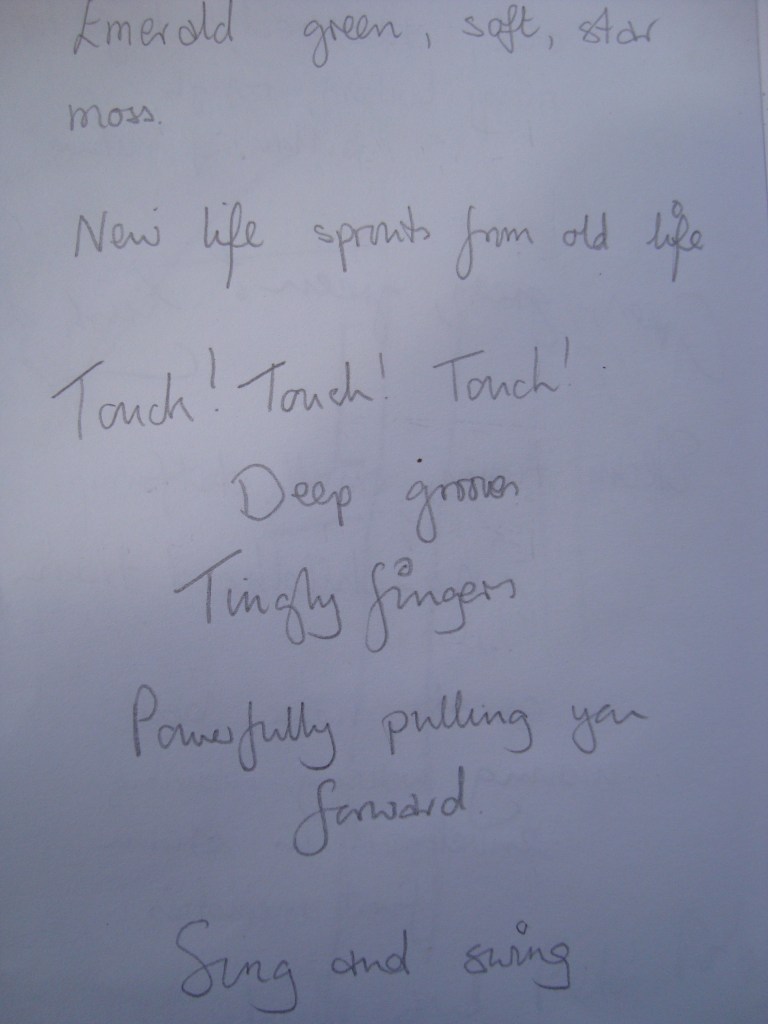 Emerald green, soft, star
moss.
New life sprouts from old life
Touch! Touch! Touch!
Deep grooves
Tingly fingers
Powerfully pulling you
forward.
Sing and swing